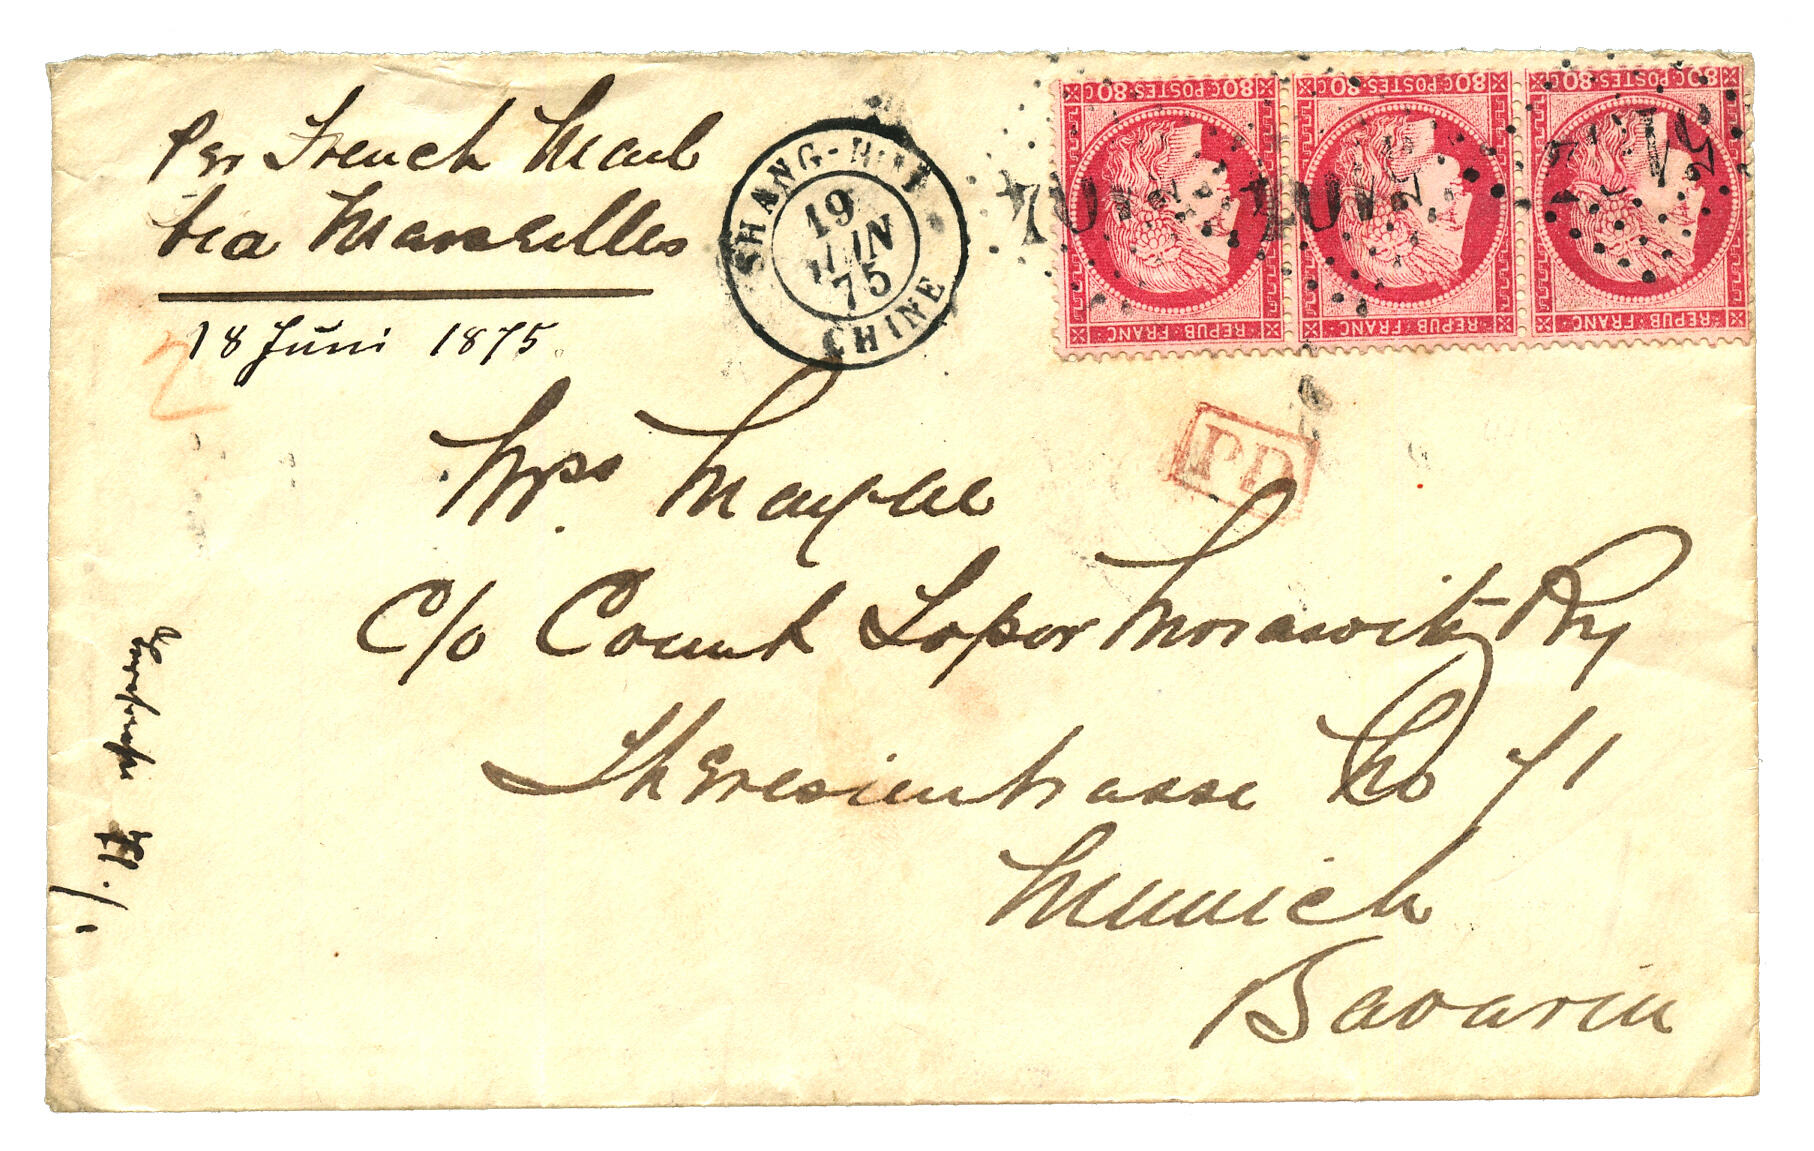 Per French Mail
via Marseilles
18 Juni 1875.
SHANG-HAI
19
JUIN
75
CHINE
80 C POSTES 80 C
REPUB FRANC
80 C POSTES 80 C
REPUB FRANC
80 C POSTES 80 C
REPUB FRANC
5104
5104
5104
PD
Mrs.
C/o Count Topor Morawitzky
Theresienstrasse No 71
Munich
Bavaria